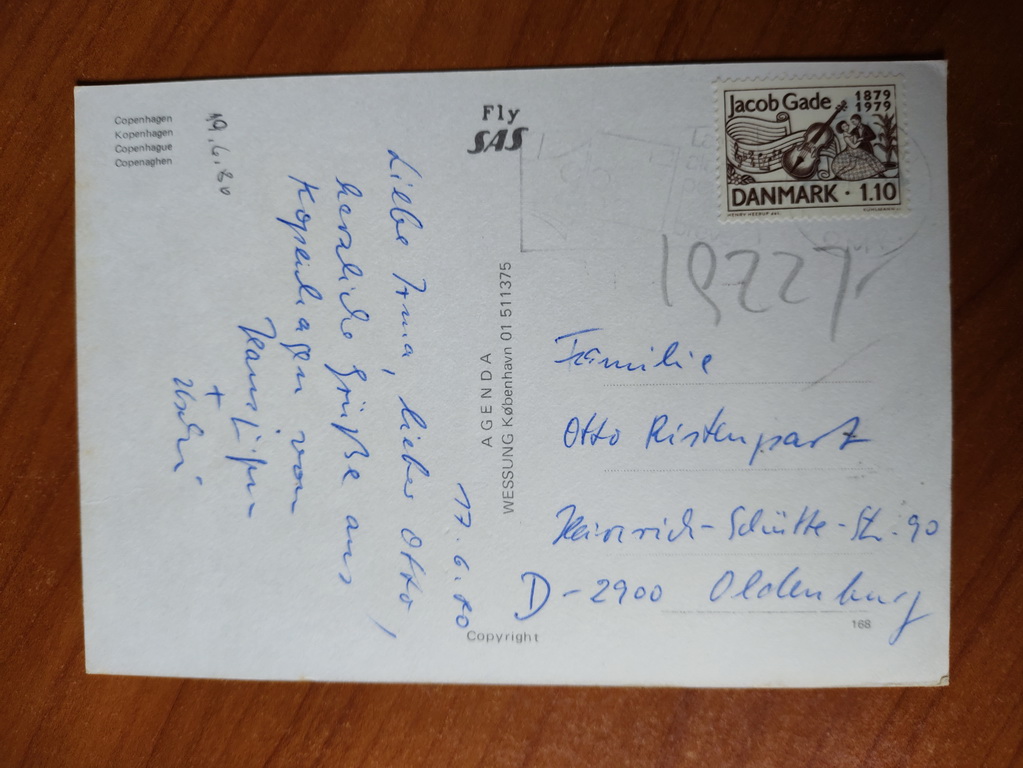 Copenhagen
Kopenhagen
Copenhague
Copenaghen
19.6.80
Fly
SAS
17.6.80
Liebe Irma, lieber Otto,
herzliche Grüße aus
Kopenhagen von
+
Uschi
AGENDA
WESSUNG København 01 511375
Copyright
Jacob Gade
1879
1979
DANMARK · 1.10
Familie
Otto Ristenpart
Heinrich-Schütte-St. 90
D-2900 Oldenburg
168